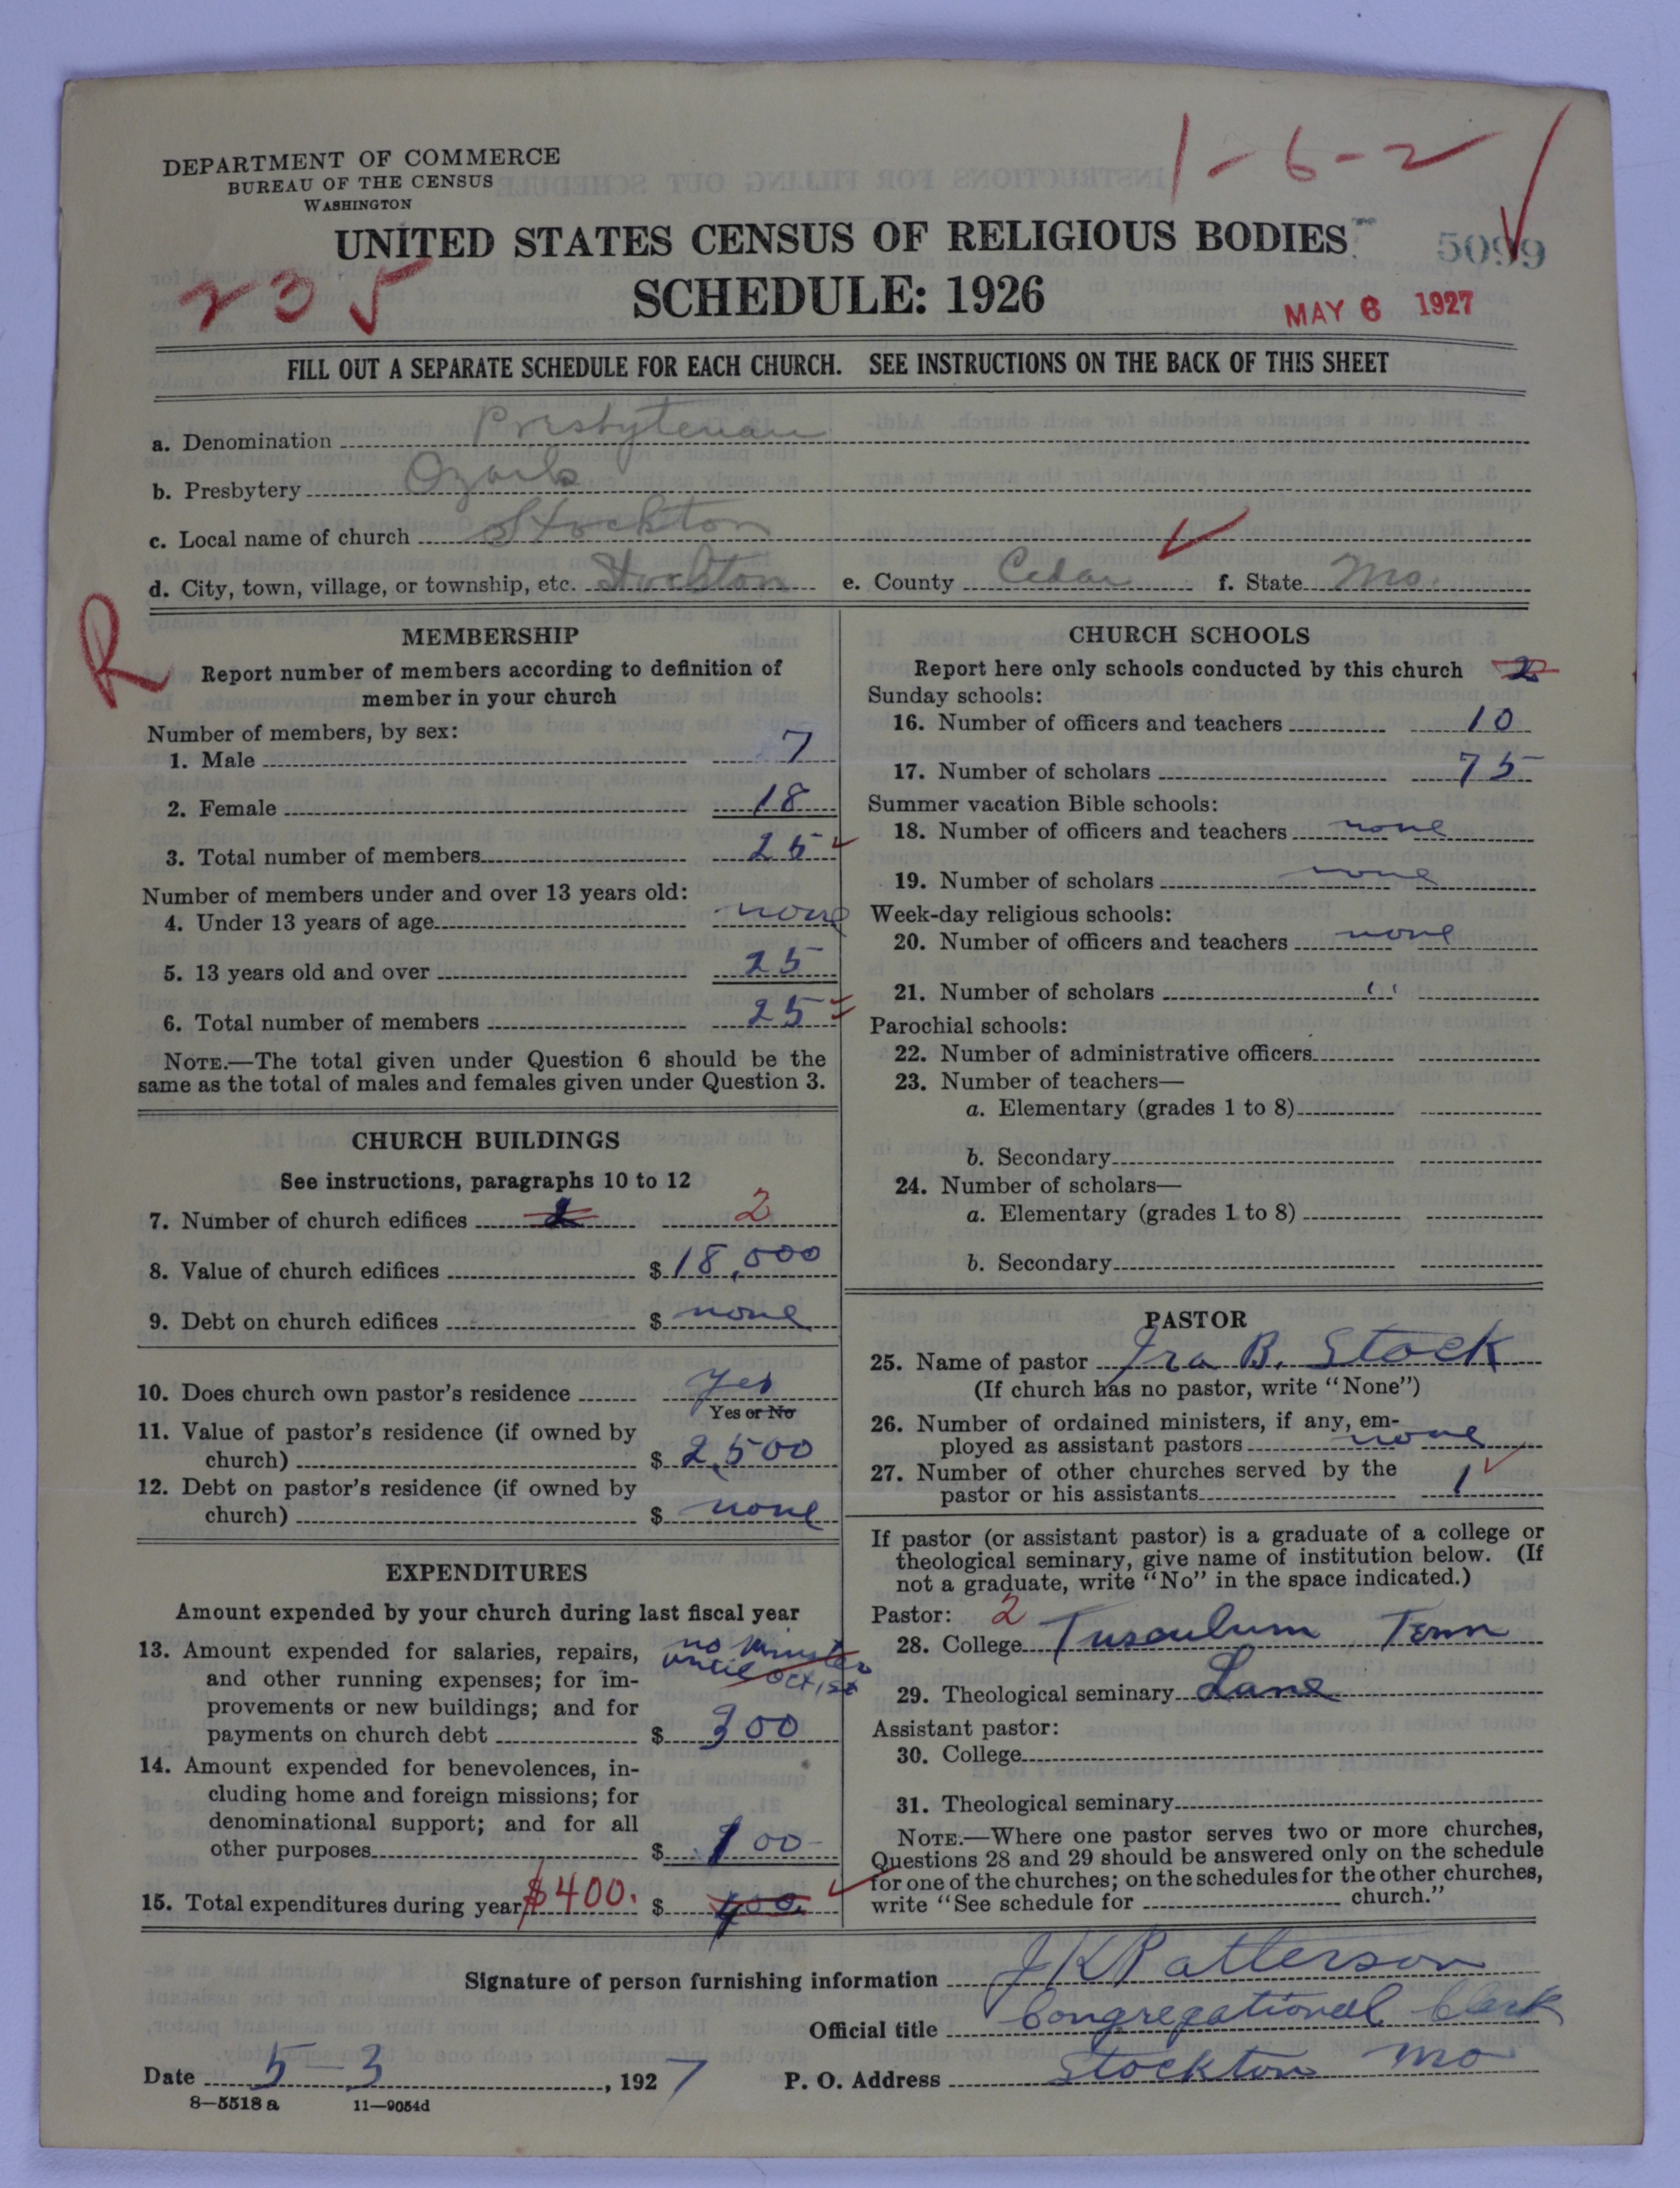 DEPARTMENT OF COMMERCE
BUREAU OF THE CENSUS
WASHINGTON
1-6-2
UNITED STATES CENSUS OF RELIGIOUS BODIES
5099
235
SCHEDULE: 1926
MAY 6 1927
FILL OUT A SEPARATE SCHEDULE FOR EACH CHURCH. SEE INSTRUCTIONS ON THE BACK OF THIS SHEET
a. Denomination Presbyterian
b. Presbytery Ozark
c. Local name of church Stockton
d. City, town, village, or township, etc. Stockton e. County Cedar f. State Mo.
R
MEMBERSHIP
Report number of members according to definition of
member in your church
Number of members, by sex:
1. Male 7
2. Female 18
3. Total number of members 25
Number of members under and over 13 years old:
4. Under 13 years of age none
5. 13 years old and over 25
6. Total number of members 25
NOTE.—The total given under Question 6 should be the
same as the total of males and females given under Question 3.
CHURCH BUILDINGS
See instructions, paragraphs 10 to 12
7. Number of church edifices 2
8. Value of church edifices $ 18,000
9. Debt on church edifices $ none
10. Does church own pastor's residence yes
Yes or No
11. Value of pastor's residence (if owned by
church) $ 2,500
12. Debt on pastor's residence (if owned by
church) $ none
EXPENDITURES
Amount expended by your church during last fiscal year
13. Amount expended for salaries, repairs, no minister
and other running expenses; for im- until Oct, 1st
provements or new buildings; and for
payments on church debt $ 300
14. Amount expended for benevolences, in-
cluding home and foreign missions; for
denominational support; and for all
other purposes $ 100
15. Total expenditures during year $400. $ 400
CHURCH SCHOOLS
Report here only schools conducted by this church 2
Sunday schools:
16. Number of officers and teachers 10
17. Number of scholars 75
Summer vacation Bible schools:
18. Number of officers and teachers none
19. Number of scholars none
Week-day religious schools:
20. Number of officers and teachers none
21. Number of scholars "
Parochial schools:
22. Number of administrative officers
23. Number of teachers—
a. Elementary (grades 1 to 8)
b. Secondary
24. Number of scholars—
a. Elementary (grades 1 to 8)
b. Secondary
PASTOR
25. Name of pastor Ira B. Stock
(If church has no pastor, write "None")
26. Number of ordained ministers, if any, em-
ployed as assistant pastors none
27. Number of other churches served by the
pastor or his assistants 1
If pastor (or assistant pastor) is a graduate of a college or
theological seminary, give name of institution below. (If
not a graduate, write "No" in the space indicated.)
Pastor: 2
28. College Tusculum Tenn
29. Theological seminary Lane
Assistant pastor:
30. College
31. Theological seminary
NOTE.—Where one pastor serves two or more churches,
Questions 28 and 29 should be answered only on the schedule
for one of the churches; on the schedules for the other churches,
write "See schedule for church."
Signature of person furnishing information J K Patterson
Official title Congregational Clerk
Date 5-3, 1927 P. O. Address Stockton Mo
8-5518 a 11-9054d